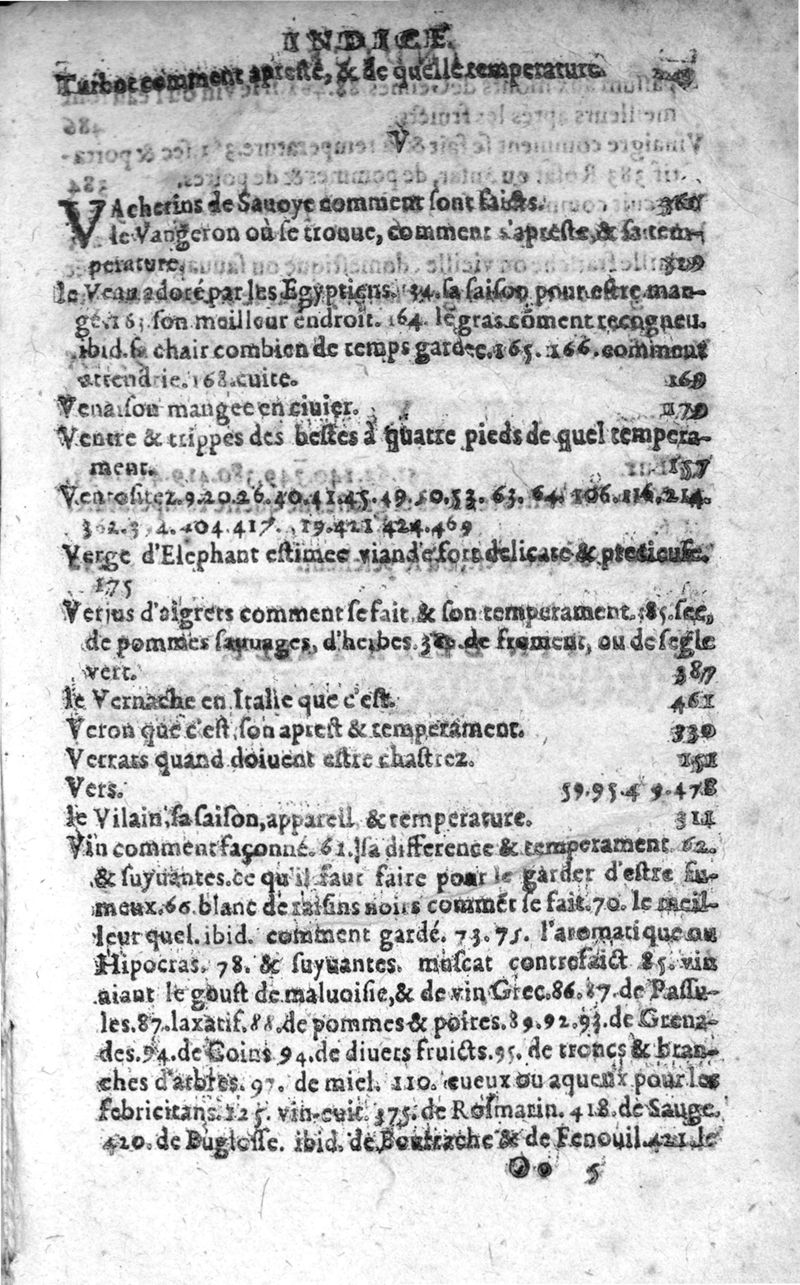 INDICE.
Turbot comment apresté, & de quelle temperature.
V
VAcherins de Sauoye comment sont faicts.
le Vangeron où se trouue, comment s'apreste, & sa tem-
perature.
le Veau adoré par les Egyptiens. 34. sa saison pour estre man-
gé. son meilleur endroit. 164. le gras cõment recogneu.
ibid. sa chair combien de temps gardee. 165. 166. comment
attendrie. 168. cuite. 169
Venaison mangee en ciuier. 170
Ventre & trippes des bestes à quatre pieds de quel tempera-
ment. 157
Ventositez. 9. 20. 26. 40. 41. 45. 49. 50. 53. 63. 64. 106. 116. 214.
404. 417. 421 424. 469
Verge d'Elephant estimee viande fort delicate & precieuse.
175
Verjus d'aigrets comment se fait & son temperament. sec,
de pommes sauuages, d'herbes. de froment, ou de segle
vert. 387
le Vernache en Italie que c'est. 461
Veron que c'est, son aprest & temperament. 330
Verrats quand doiuent estre chastrez. 151
Vers. 59. 95. 478
le Vilain, sa saison, appareil & temperature. 311
Vin comment façonné. 61. sa difference & temperament 62.
& suyuantes. ce qu'il faut faire pour le garder d'estre fu-
meux. 66. blanc de raisins noirs commẽt se fait. 70. le meil-
leur quel. ibid. comment gardé. 73. 75. l'aromatique ou
Hipocras. 78. & suyuantes. muscat contrefaict 85. vin
aiant le goust de maluoisie, & de vin Grec. 86. 87. de Passu-
les. 87. laxatif. 88. de pommes & poires. 89. 92. 93. de Grena-
des. 94. de Coins 94. de diuers fruicts. 95. de troncs & bran-
ches d'arbres. 97. de miel. 110. cueux ou aqueux pour les
febricitans. 125. vin cuit. 375. de Rosmarin. 418. de Sauge.
420. de Buglosse. ibid. de Bourrache & de Fenouil. 421. le
Oo 5